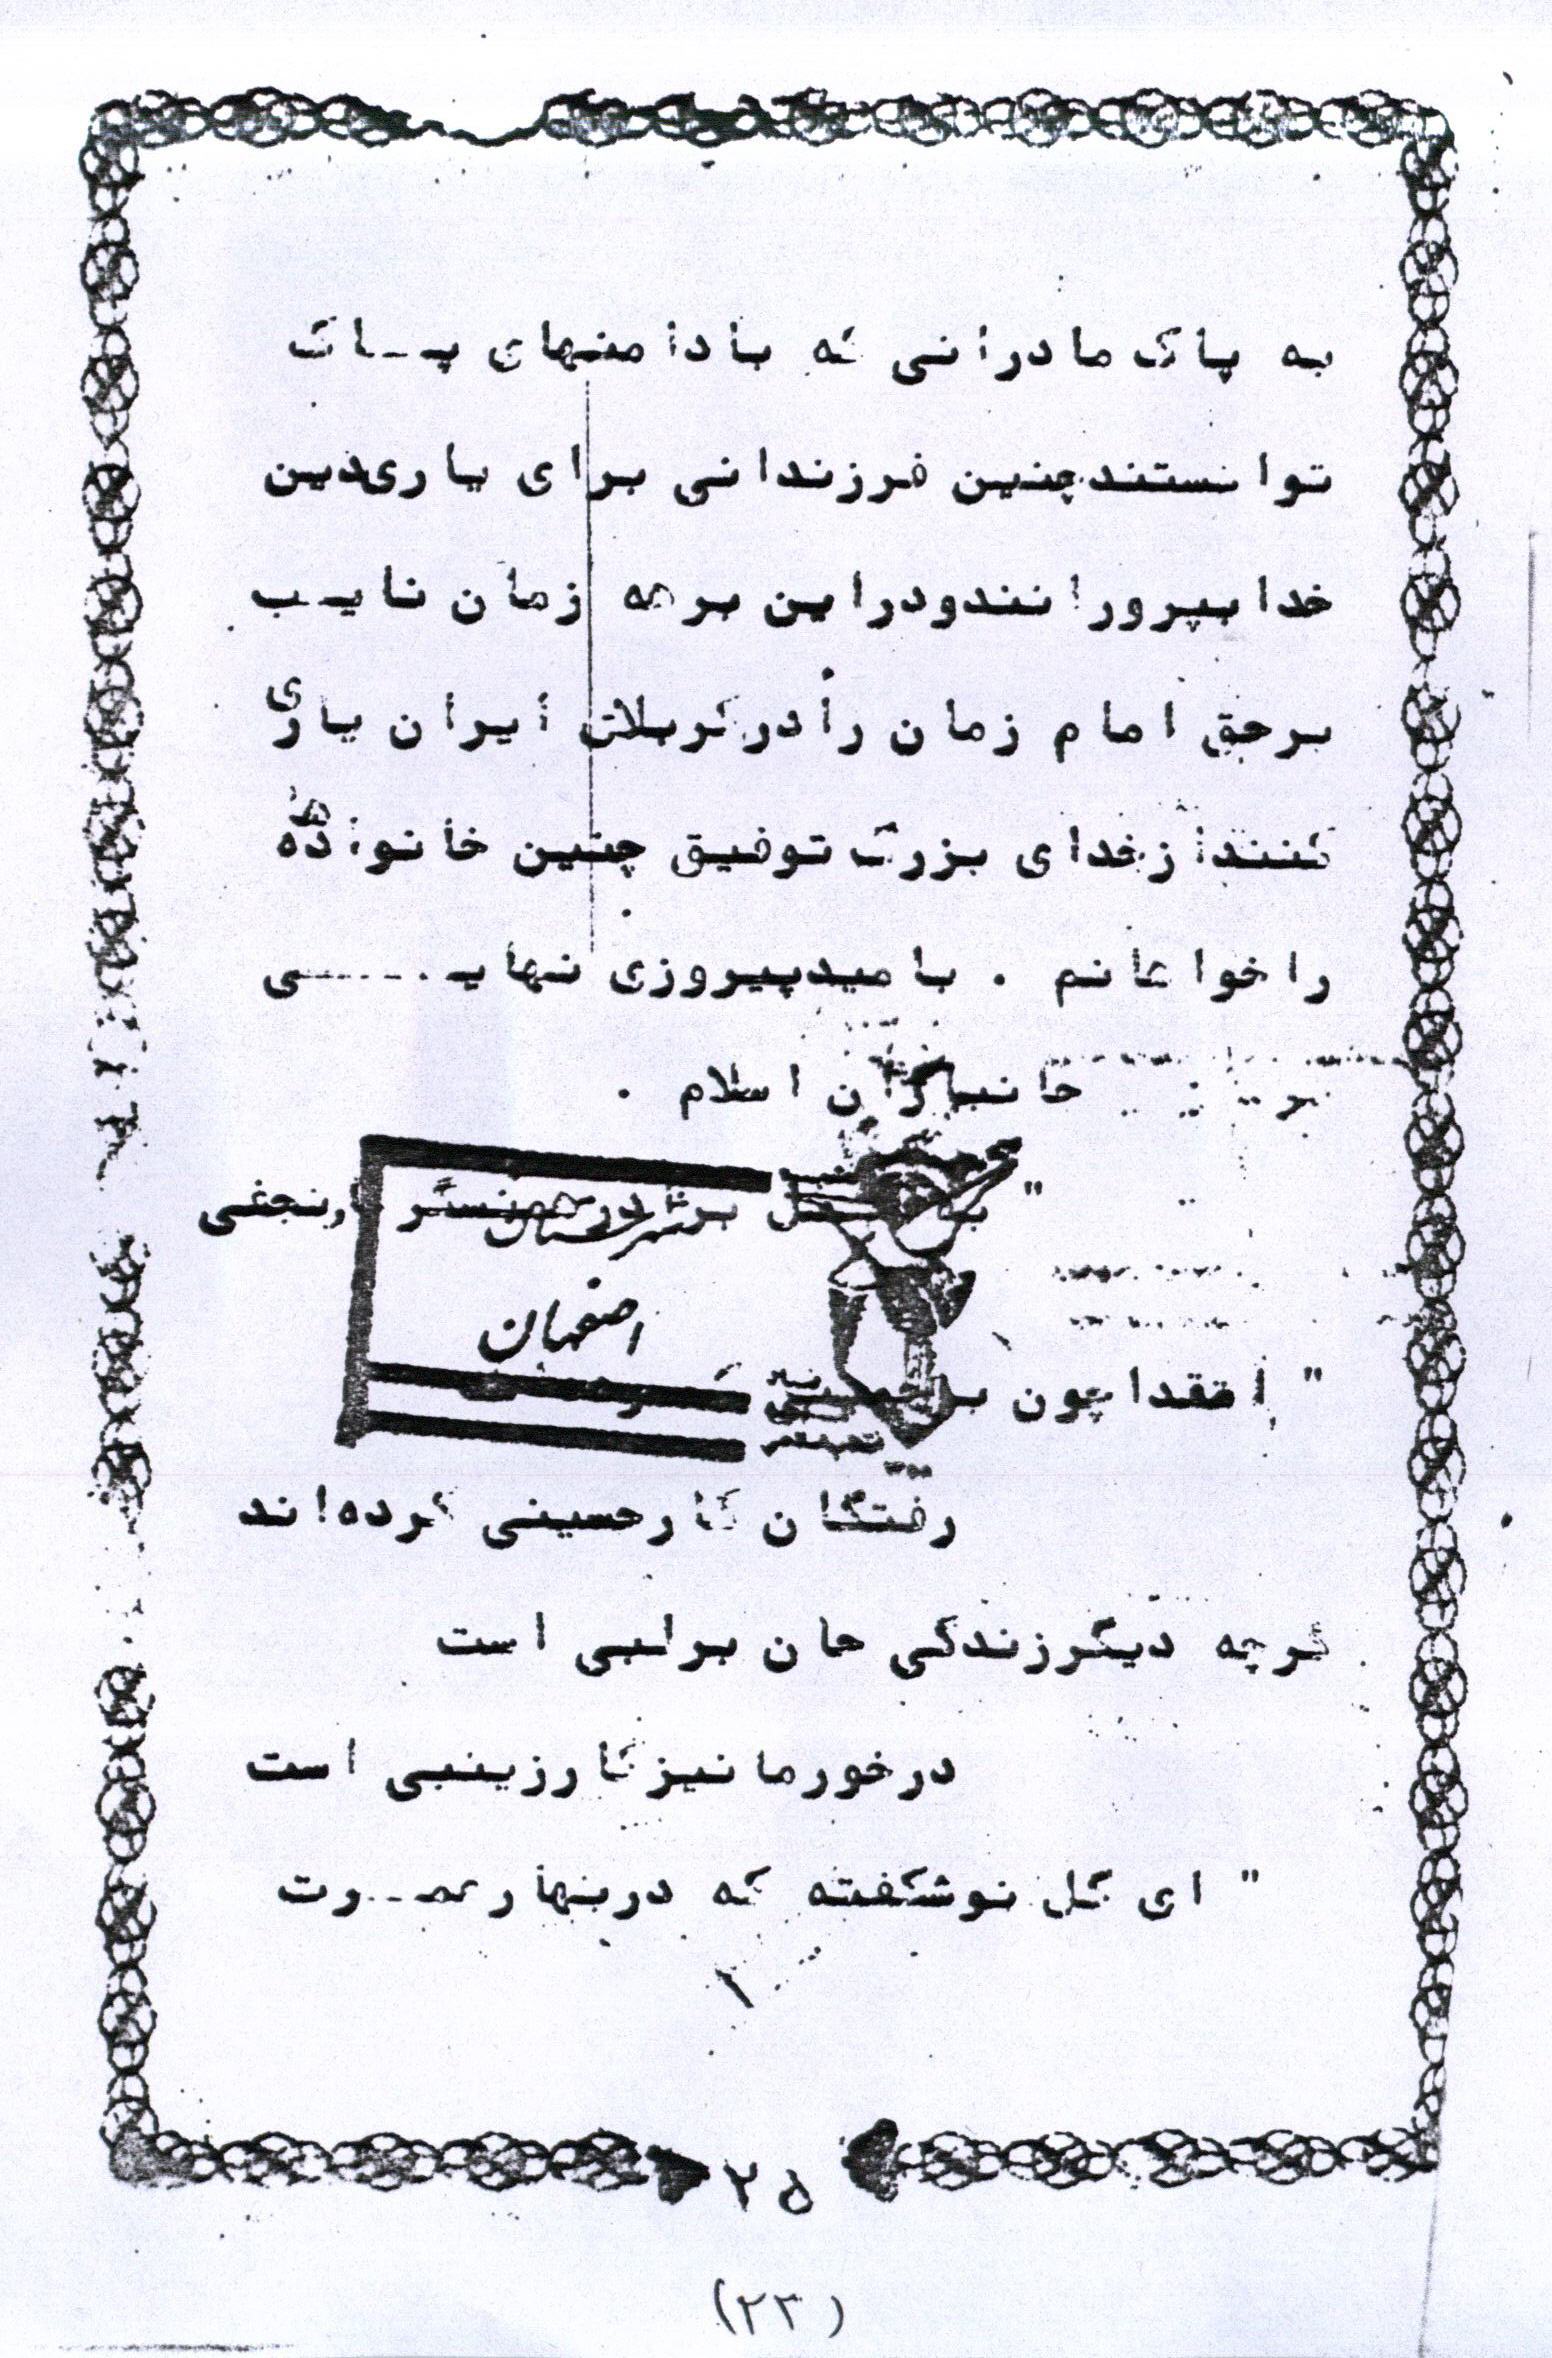 به پاک مادرانی که با دامنهای پاک
توانستند چنین فرزندانی برای یاری دین
خدا بپرورانند و در این برهه زمان نایب
برحق امام زمان را در کربلای ایران یاری
کنند از خدای بزرگ توفیق چنین خانواده ها
را خواهانم . با امید پیروزی نهایی
جانبازان اسلام .
" برادر همسنگر نجفی
شهرستان
اصفهان
" اقتدا چون بر حسینی کرده‌اند
رفتگان کار حسینی کرده‌اند
گرچه دیگر زندگی جان بر لبی است
در خور ما نیز کار زینبی است
" ای گل نوشکفته که در بهار عمرت
۱
۲۵
(۲۳)